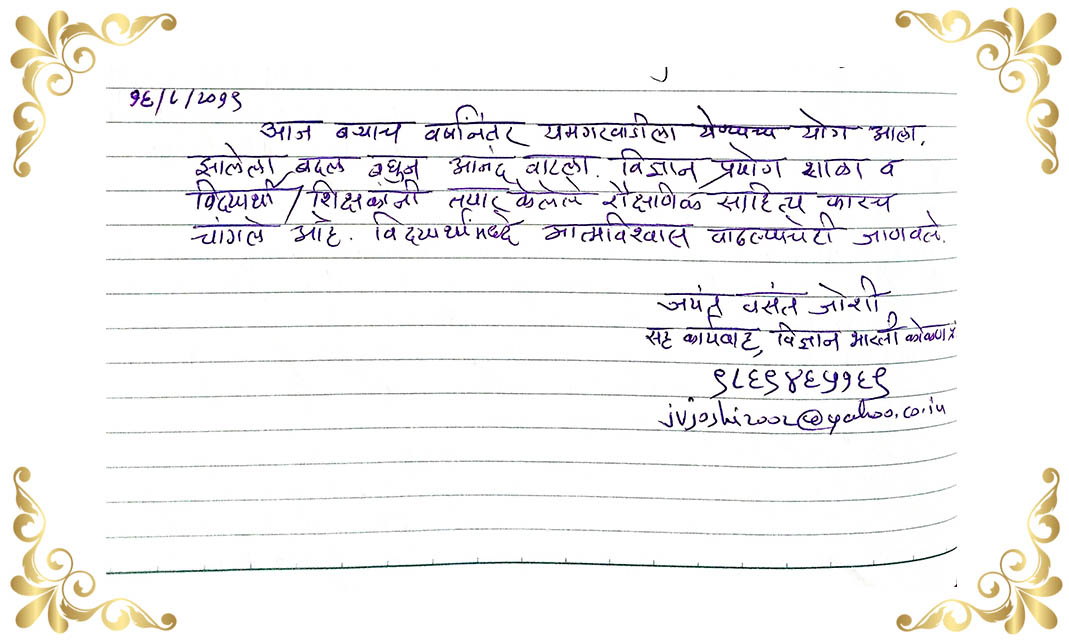 १६/८/२०१९
आज बऱ्याच वर्षांनंतर यमगरवाडीला येण्याचा योग आला.
झालेला बदल बघुन आनंद वाटला. विज्ञान प्रयोग शाळा व
विद्यार्थी / शिक्षकांनी तयार केलेले शैक्षणिक साहित्य फारच
चांगले आहे. विद्यार्थ्यांमध्ये आत्मविश्वास वाढल्याचेही जाणवले.
जयंत वसंत जोशी
सह कार्यवाह, विज्ञान भारती कोकण प्रां
९८६९४६५१६९
jvjoshi2002@yahoo.co.in